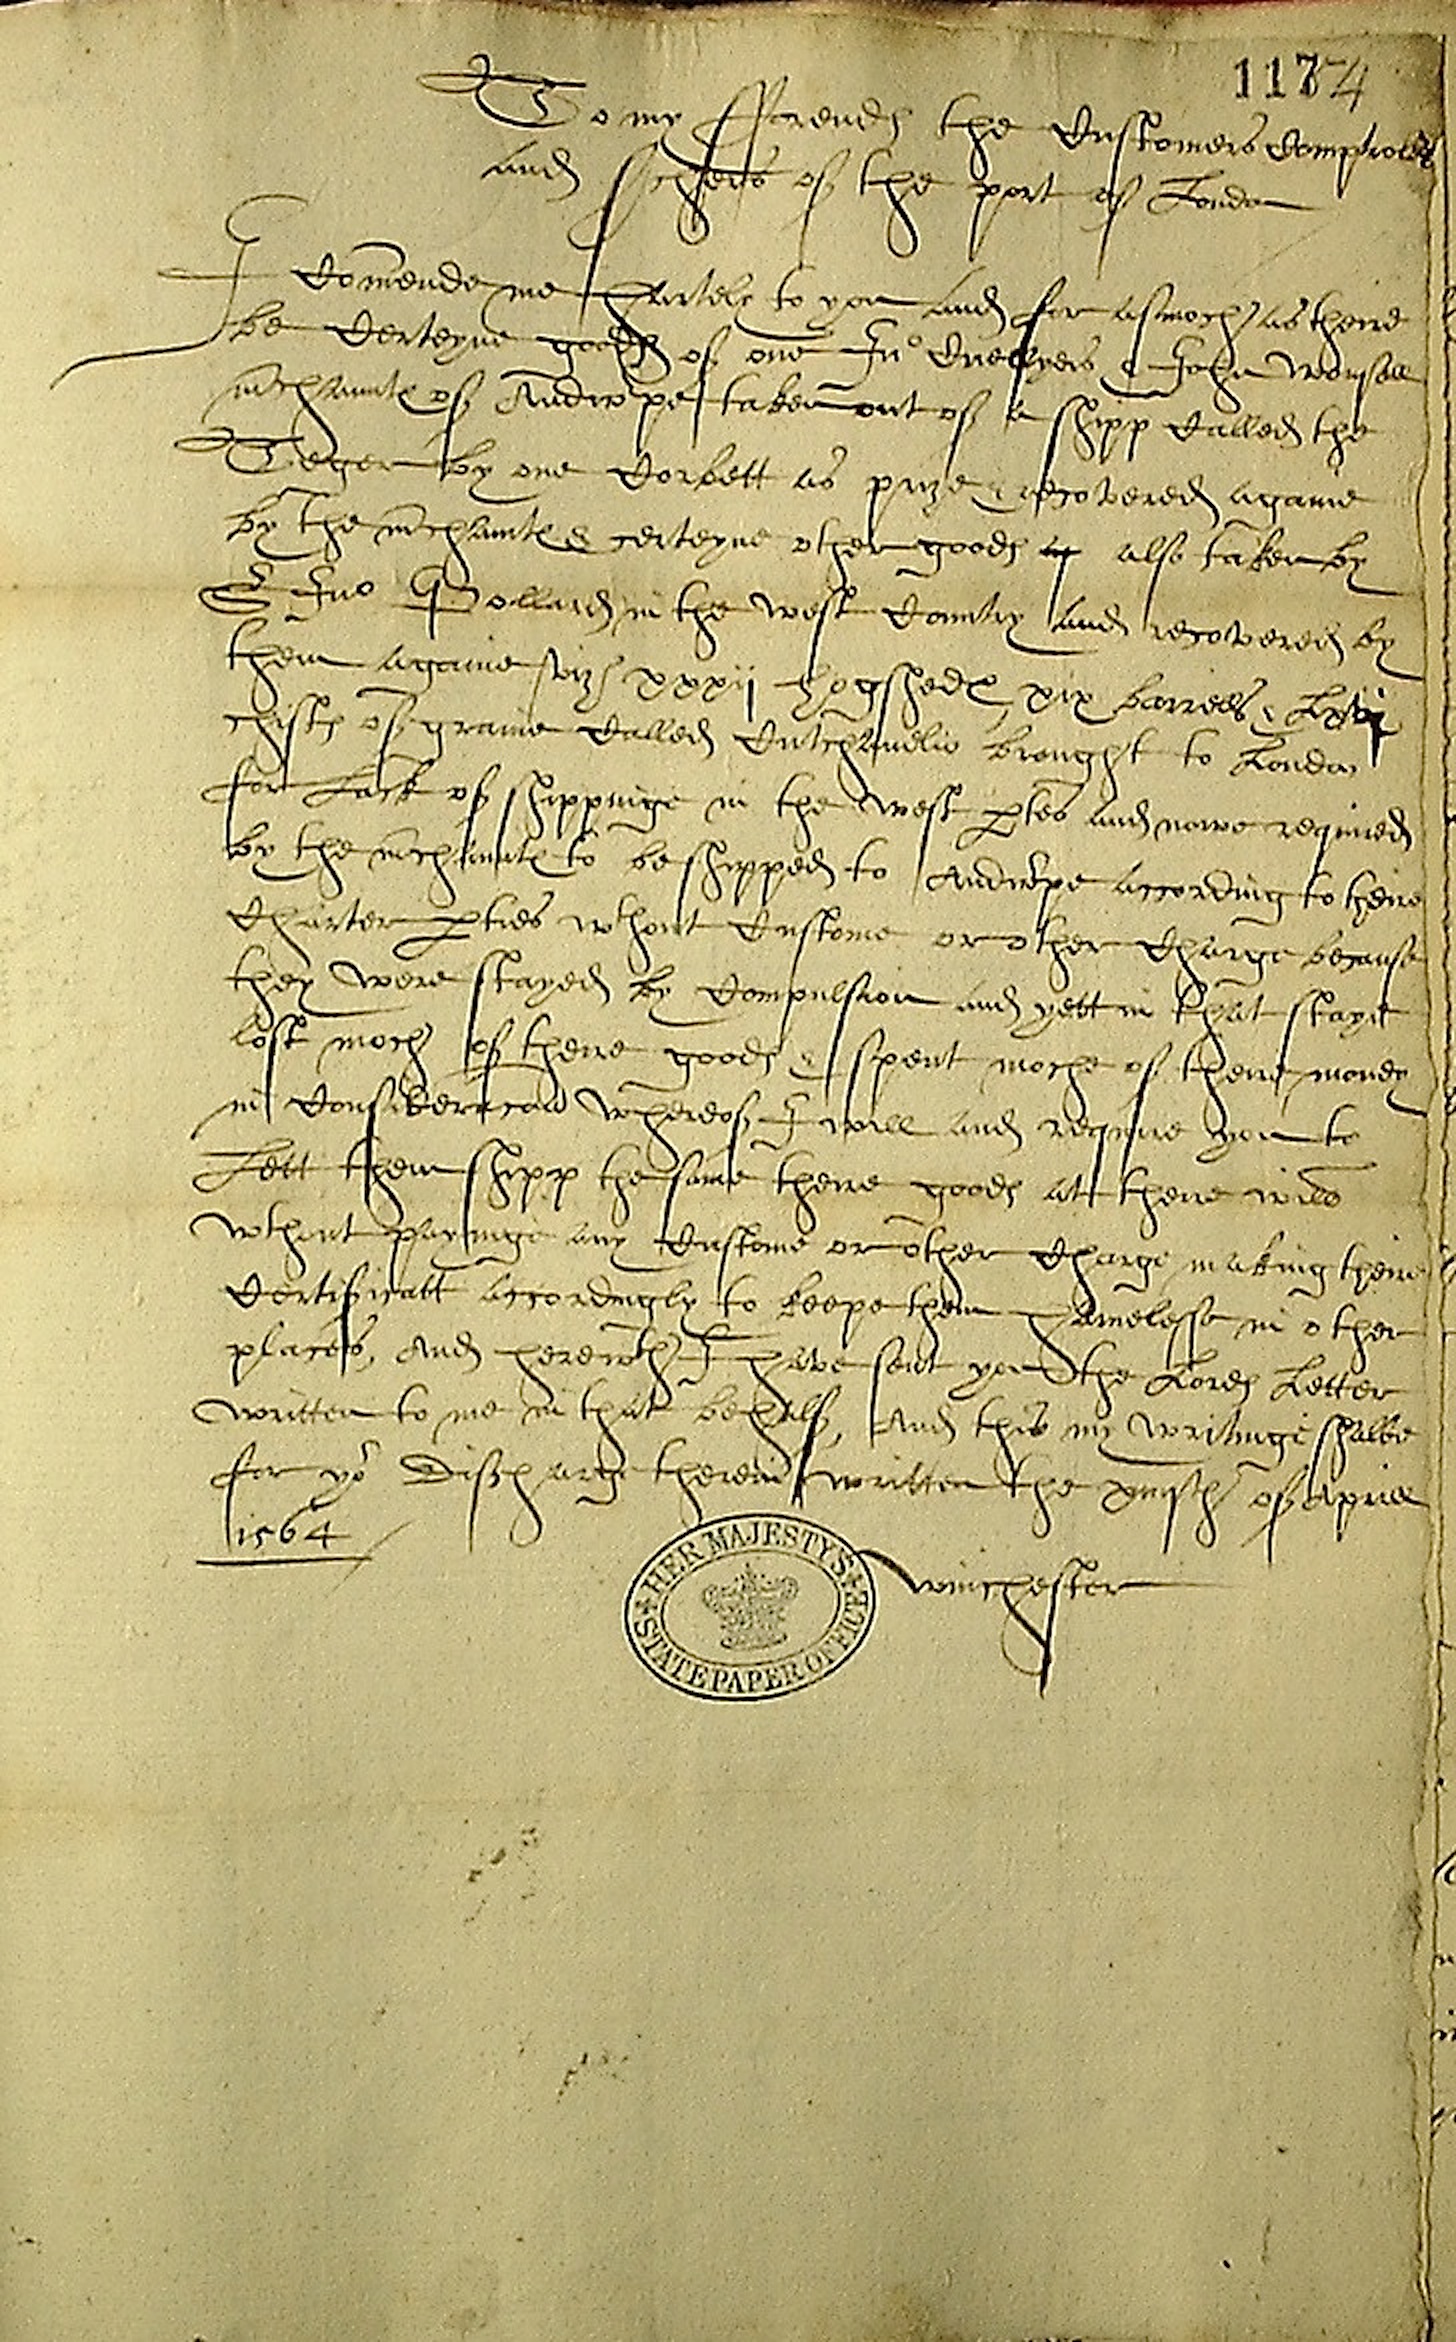 1174
To my ffrends the Customers Comptrollers
and serchers of the port of London
I Comende me hartely to you and for asmoch as there
be Certeyne goods of one Jno Cuellyers & John
mchaunts of Andwrpe taken out of a shipp Called the
Teger by one Corbett as prize & recovered againe
by the mchaunts & certeyne other goods also taken by
Sr Jno Pollard in the west Countrey and recovered by
them againe viz xxxij hogsheds xix barrells &
chists of graine Called Cutchanelio brought to London
for Lack of shippinge in the west ptes and nowe required
by the mchaunts to be shipped to Andwrpe according to theire
Charter pties wthout Custome or other Charge because
they were stayed by Compulsion and yett in that staye
lost moch of there goods & spent moche of there money
in Consideracion whereof I will and require you to
Lett them shipp the same there goods at there wills
wthout payinge any Custome or other Charge making there
Certificatt accordingly to keepe them harmelesse in other
places, And herewth I have sent you the Lords Letter
written to me in that behalf, And this my writinge shalbe
for yor Discharge therein written the of Aprill
1564
Winchester
HER MAJESTY'S
STATE PAPER OFFICE